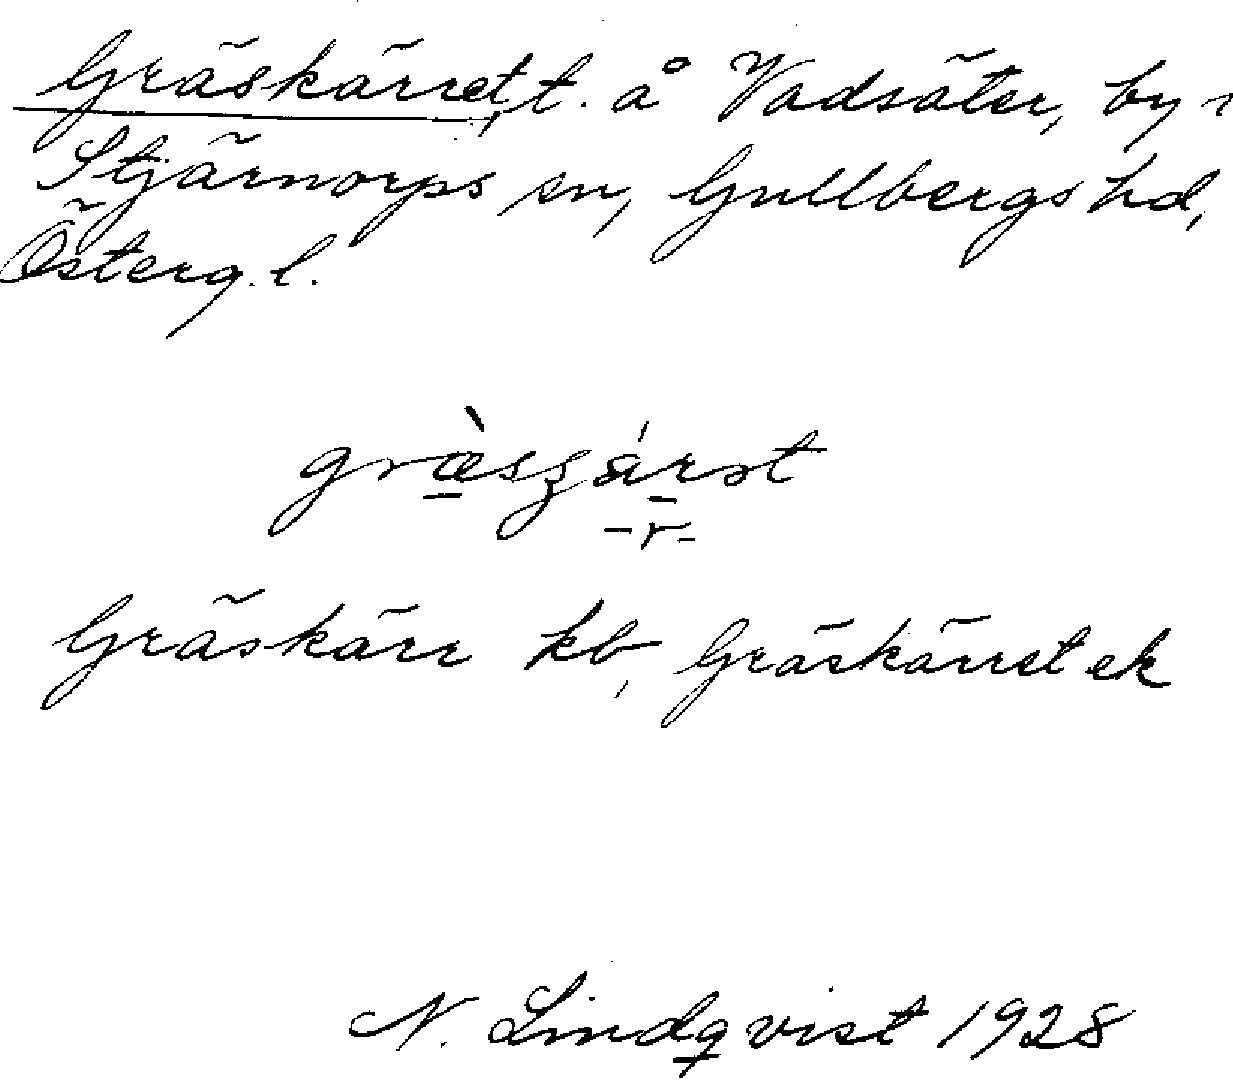 Gräskärret, t. å Vadsäter, by i
Stjärnorps sn, Gullbergs hd,
Österg. l.
Gräskärr kb, Gräskärret ek
N. Lindqvist 1928